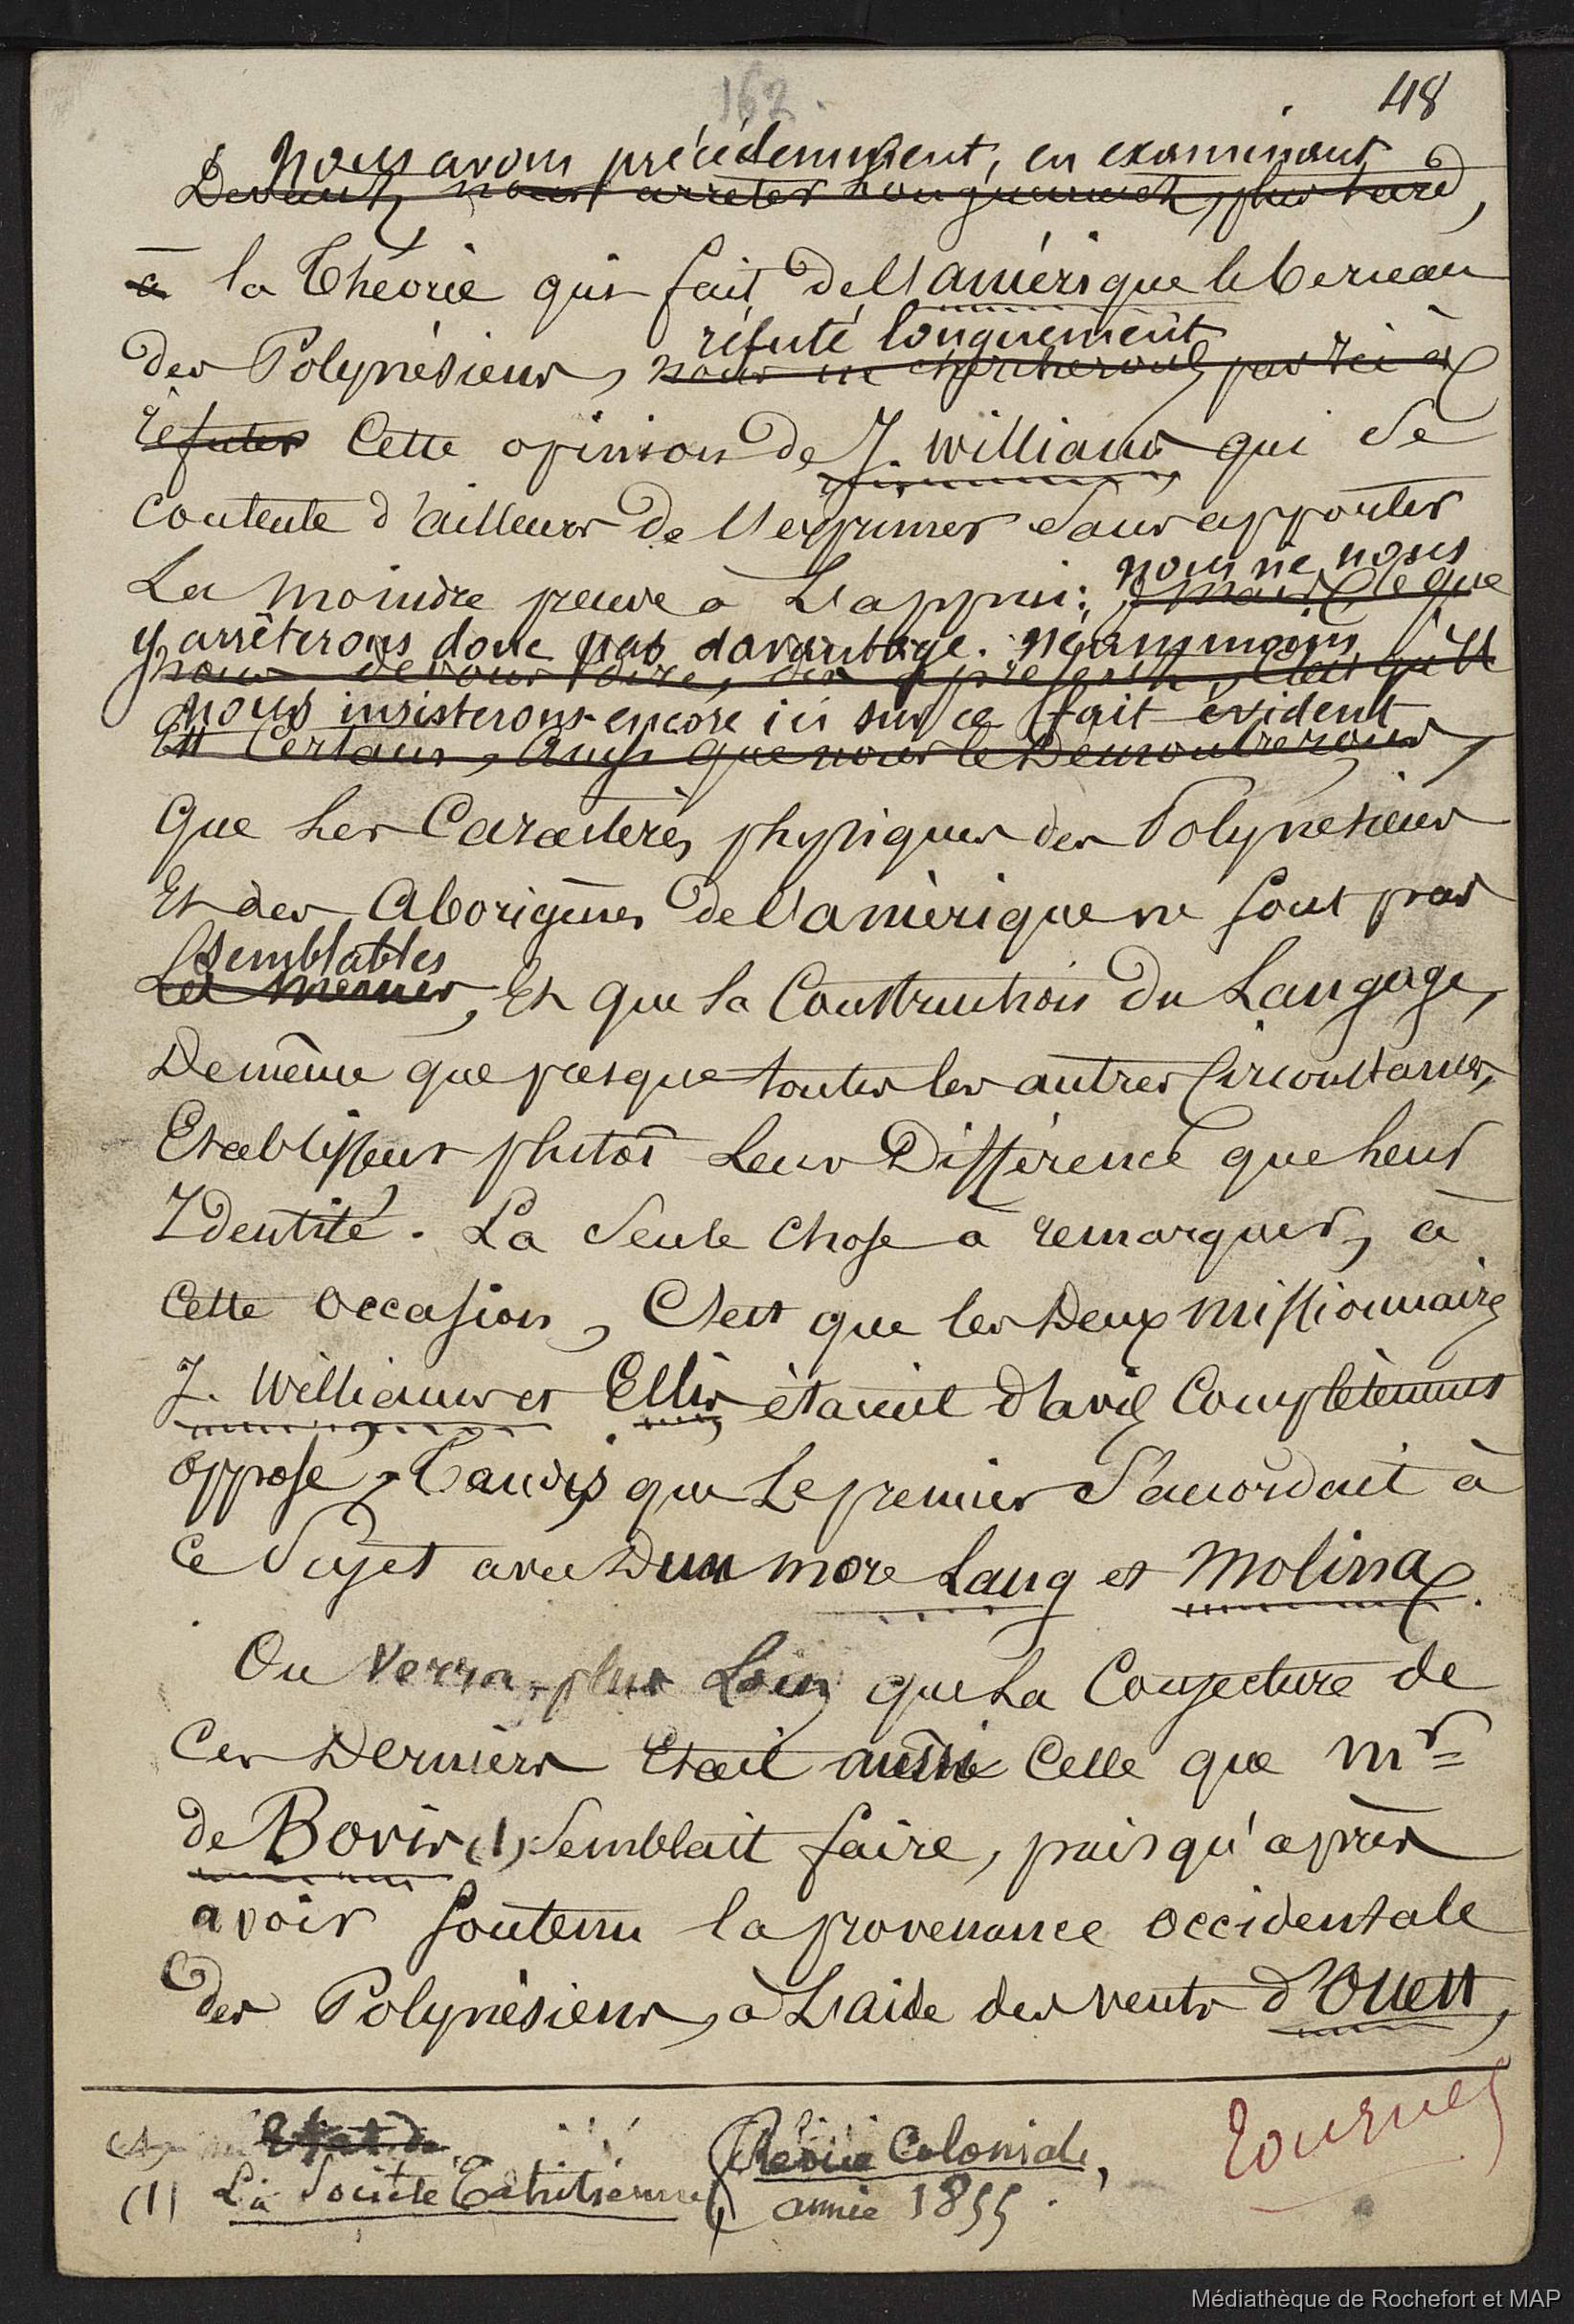 162.
418
Nous avons précédemment, en examinant
Devant nous arrêter longuement, plus tard,
à la Théorie qui fait de l'amérique le berceau
réfuté longuement
des Polynésiens, nous ne chercherons pas ici à
réfuter Cette opinion de J. Williams qui se
contente d'ailleurs de l'exprimer sans apporter
nous ne nous
La moindre preuve à L'appui: mais ce que
y arrêterons donc pas davantage. Néanmoins
nous devons dire, dès à présent, c'est qu'il
nous insisterons encore ici sur ce fait évident
Est Certain, ainsi que nous le Démontrerons,
Que Les Caractères physiques des Polynésiens
Et des Aborigènes de l'amérique ne sont pas
semblables
Les mêmes, Et que la Construction du Langage,
De même que presque toutes les autres Circonstances,
Etablissent plutôt Leur Différence que Leur
Identité. La Seule chose à remarquer, à
Cette occasion, C'est que les Deux missionnaires
J. Williams et Ellis étaient d'avis Complètement
opposé, Tandis que Le premier S'accordait à
Ce Sujet avec Dunmore Lang et Molina.
On Verra plus Loin que La Conjecture de
Ces Derniers Etait aussi Celle que Mr
de Bovis (1) Semblait faire, puisqu'après
avoir soutenu la provenance occidentale
des Polynésiens, à L'aide des vents d'Ouest,
(1) Etat de
(1) La Société Tahitienne (Revue Coloniale,
année 1855.
Tournez
Médiathèque de Rochefort et MAP